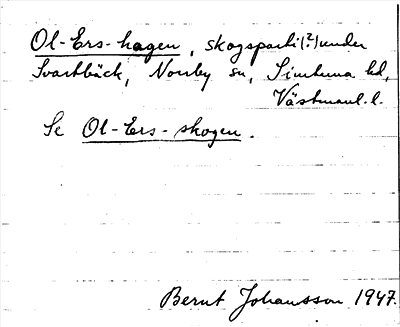 Ol-Ers-hagen, skogsparti(?) under
Svartbäck, Norrby sn, Simtuna hd,
Västmanl. l.
Se Ol-Ers-skogen.
Bernt Johansson 1947.